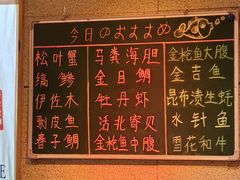 今日のおすすめ
松叶蟹 马粪海胆 金枪鱼大腹
缟鲹 金目鲷 金吉鱼
伊佐木 牡丹虾 昆布渍生蚝
剥皮鱼 活北寄贝 水针鱼
春子鲷 金枪鱼中腹 雪花和牛